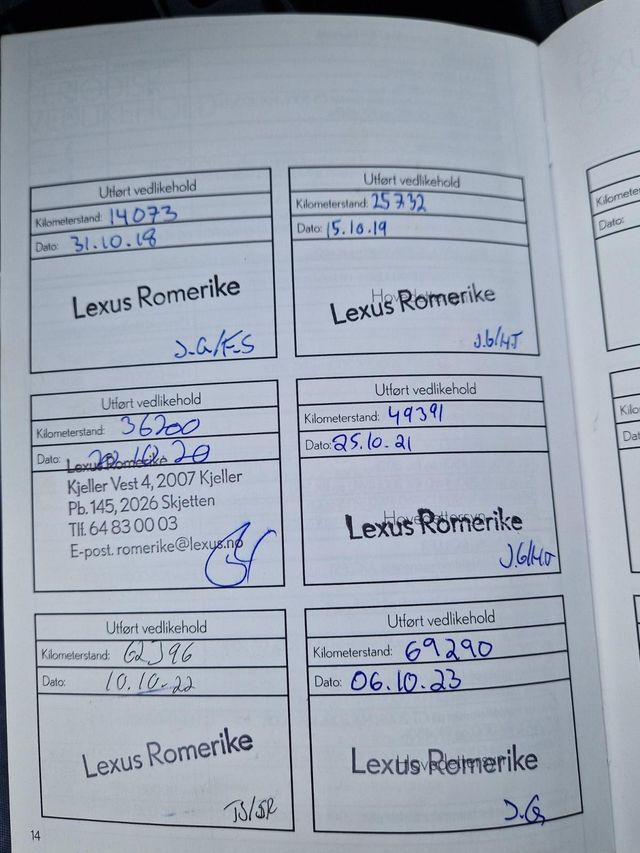 Utført vedlikehold
Kilometerstand: 14073
Dato: 31.10.18
Lexus Romerike
J.G/F.S
Utført vedlikehold
Kilometerstand: 25732
Dato: 15.10.19
Lexus Romerike
J.G/HJ
Utført vedlikehold
Kilometerstand: 36200
Dato: 22.10.20
Lexus Romerike
Kjeller Vest 4, 2007 Kjeller
Pb. 145, 2026 Skjetten
Tlf. 64 83 00 03
E-post. romerike@lexus.no
Utført vedlikehold
Kilometerstand: 49391
Dato: 25.10.21
Lexus Romerike
Utført vedlikehold
Kilometerstand:
Dato: 10.10.22
Lexus Romerike
TS/SR
Utført vedlikehold
Kilometerstand: 69290
Dato: 06.10.23
Lexus Romerike
J.G
14
Dato: